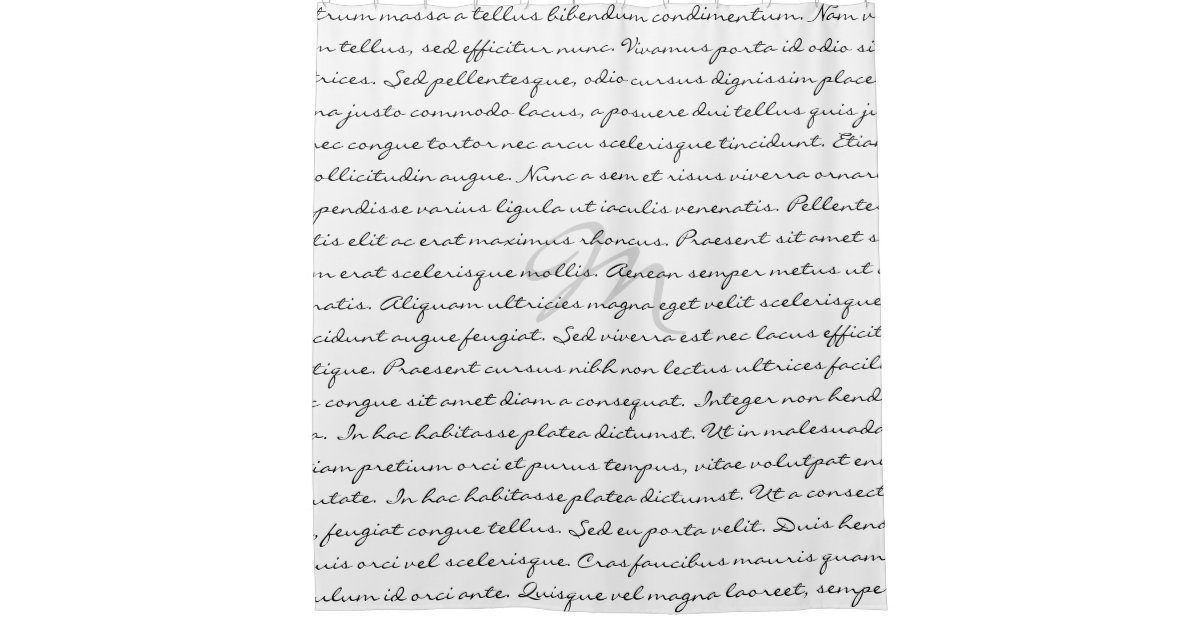 trum massa a tellus bibendum condimentum. Nam v
n tellus, sed efficitur nunc. Vivamus porta id odio si
rices. Sed pellentesque, odio cursus dignissim place
na justo commodo lacus, a posuere dui tellus quis ju
nec congue tortor nec arcu scelerisque tincidunt. Etiam
ollicitudin augue. Nunc a sem et risus viverra ornar
pendisse varius ligula ut iaculis venenatis. Pellente
tis elit ac erat maximus rhoncus. Praesent sit amet s
m erat scelerisque mollis. Aenean semper metus ut
M
natis. Aliquam ultricies magna eget velit scelerisque
cidunt augue feugiat. Sed viverra est nec lacus efficit
tique. Praesent cursus nibh non lectus ultrices facil
congue sit amet diam a consequat. Integer non hend
a. In hac habitasse platea dictumst. Ut in malesuada
iam pretium orci et purus tempus, vitae volutpat eni
utate. In hac habitasse platea dictumst. Ut a consect
, feugiat congue tellus. Sed eu porta velit. Duis hend
uis orci vel scelerisque. Cras faucibus mauris quam
ulum id orci ante. Quisque vel magna laoreet, sempe